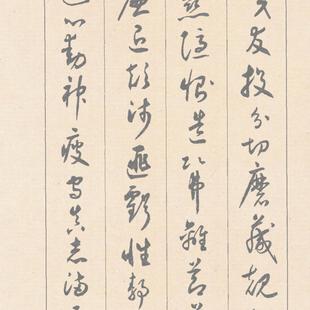 友投分切磨箴規
惻隱造次弗離節
廉退顛沛匪虧性靜
心動神疲守真志滿